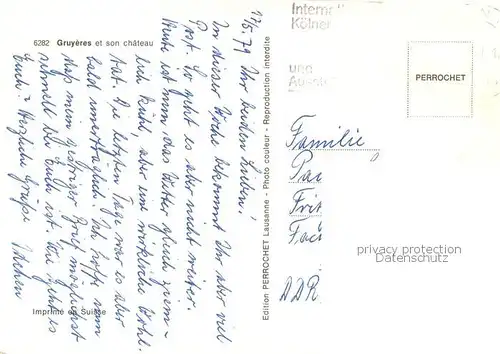 6282 Gruyères et son château
17.8.79
Ihr beiden Lieben!
In dieser Woche bekommt Ihr aber viel
Post. So geht es aber nicht weiter.
Heute ist nun das Wetter gleich ziem-
lich kühl, aber eine wirkliche Wohl-
tat. Die letzten Tage war es aber
bald unerträglich. Ich hoffe nun
daß mein gestriger Brief möglichst
schnell bei Euch ist. Wie geht es
Euch? Herzliche Grüße
Imprimé en Suisse
Edition PERROCHET Lausanne - Photo couleur - Reproduction interdite
Intern
Kölner
und
PERROCHET
Familie
Pa
Frit
DDR
privacy protection
Datenschutz